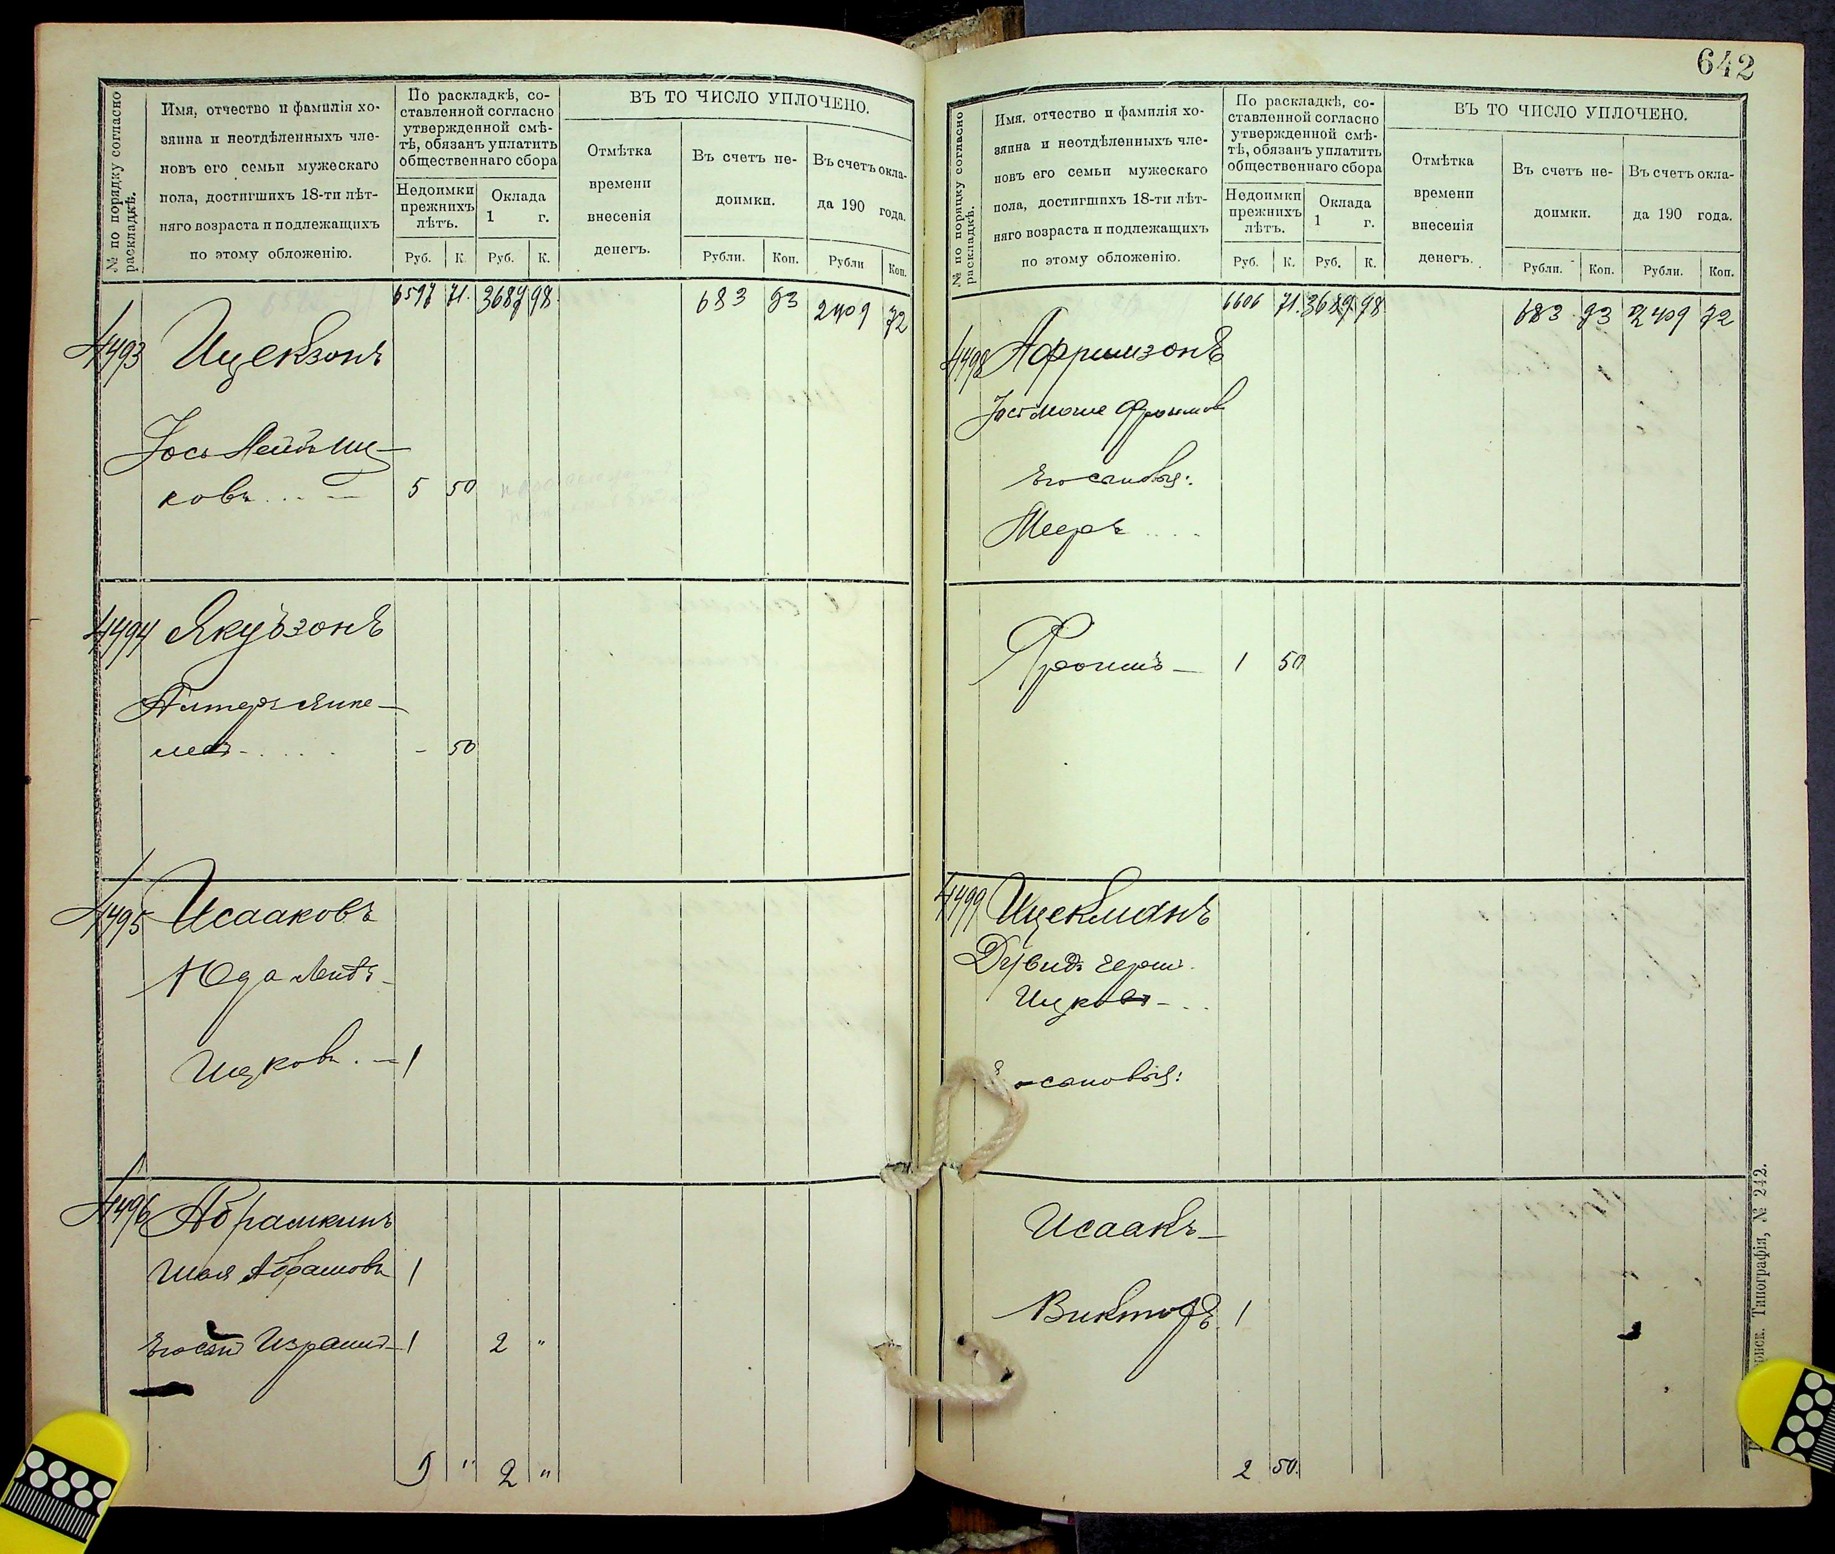 № по порядку согласно раскладкѣ.
Имя, отчество и фамилія хо-
зяина и неотдѣленныхъ чле-
новъ его семьи мужескаго
пола, достигшихъ 18-ти лѣт-
няго возраста и подлежащихъ
по этому обложенію.
По раскладкѣ, со-
ставленной согласно
утвержденной смѣ-
тѣ, обязанъ уплатить
общественнаго сбора
Недоимки
прежнихъ
лѣтъ.
Оклада
1 г.
Руб. К. Руб. К.
ВЪ ТО ЧИСЛО УПЛОЧЕНО.
Отмѣтка
времени
внесенія
денегъ.
Въ счетъ не-
доимки.
Въ счетъ окла-
да 190 года.
Рубли. Коп. Рубли Коп.
6597 71. 3687 98. 683 93 2409 72
4493 Ицексонъ
Іось Лейб Иц-
ковъ 5 50
4494 Якубзонъ
Алтеръ Янке-
левъ - 50
4495 Исааковъ
Юда Лейбъ
Ицковъ. — 1
4496 Абрамкинъ
Шая Абрамовъ 1
Его сын Израиль 1 2 "
9 " 2 "
642
№ по порядку согласно раскладкѣ.
Имя, отчество и фамилія хо-
зяина и неотдѣленныхъ чле-
новъ его семьи мужескаго
пола, достигшихъ 18-ти лѣт-
няго возраста и подлежащихъ
по этому обложенію.
По раскладкѣ, со-
ставленной согласно
утвержденной смѣ-
тѣ, обязанъ уплатить
общественнаго сбора
Недоимки
прежнихъ
лѣтъ.
Оклада
1 г.
Руб. К. Руб. К.
ВЪ ТО ЧИСЛО УПЛОЧЕНО.
Отмѣтка
времени
внесенія
денегъ.
Въ счетъ не-
доимки.
Въ счетъ окла-
да 190 года.
Рубли. Коп. Рубли. Коп.
6606 71. 3689. 98 683 93 2409 72
4498 Афримзонъ
Іосъ Моше Фроимов
Его сыновья:
Мееръ
Фроимъ — 1 50
4499 Ицекманъ
Дувидъ Герш.
Ицковъ -
сыновья:
Исаакъ —
Викторъ 1
2 50.
Типографія, № 242.